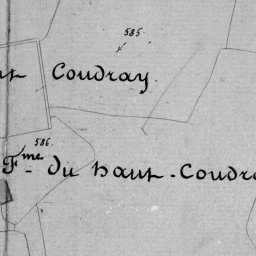 585.
Coudray.
586.
Fme du haut-Coudr